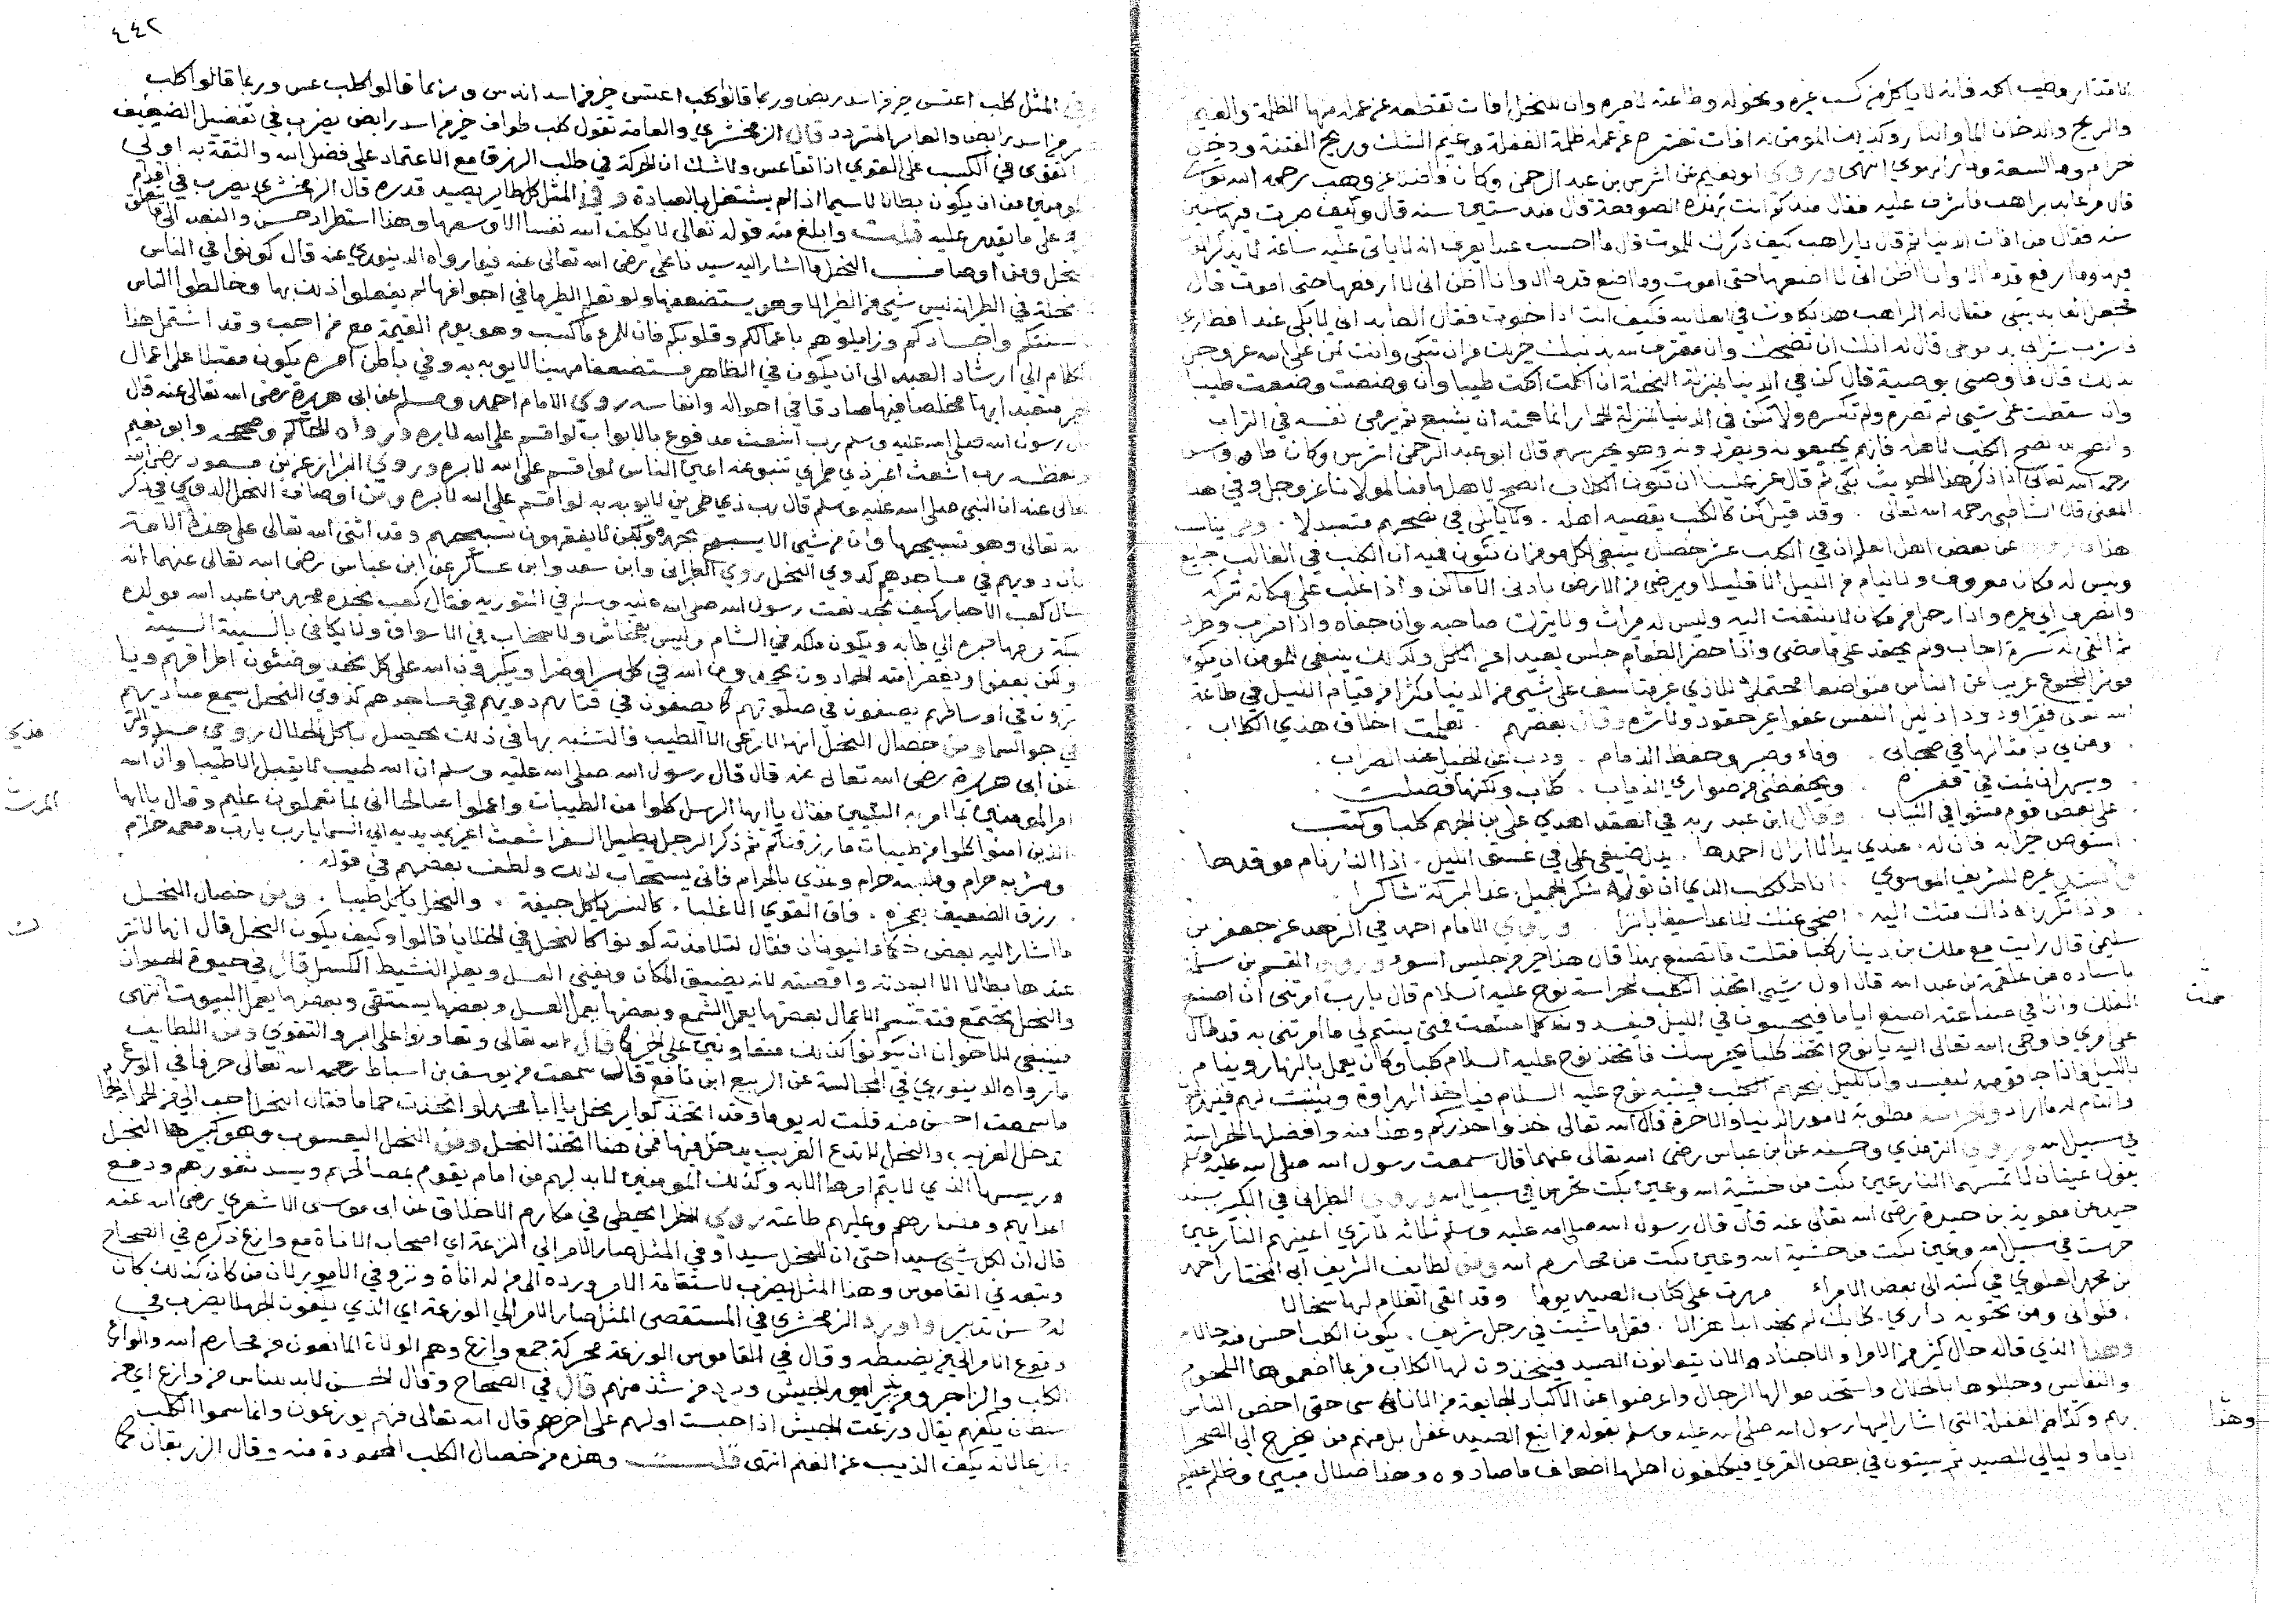 الاقذار وطيب اكله فانه لا ياكل من كسب غيره ونحوله وطاعته لاميره وان للنحل افات تقطعه عن عمله منها الظلمة والغيم
والريح والدخان والماء والنار وكذلك المومن له افات تغيره عن عمله ظلمة الغفلة وغيم الشك وريح الفتنة ودخان
الحرام وماء السعة ونار الهوي انتهى وروي ابو نعيم عن اشرس بن عبد الرحمن وكان عن وهب رحمه الله تعالى
قال مر عابد براهب فاشرف عليه فقال منذ كم انت بهذه الصومعة قال منذ ستين سنه قال وكيف صبرت فيها ستين
سنه فقال من افات الدنيا ثم قال يا راهب كيف ذكرك للموت قال ما احسب عبدا يعرف الله لا ياتى عليه ساعة لا يذكر الله
فيه وما ارفع قدما الا وانا اظن انى لا اضعها حتى اموت وما اضع قدما الا وانا اظن انى لا ارفعها حتى اموت قال
فجعل العابد يبكى فقال له الراهب هذا بكاوك في العلانيه فكيف انت اذا خلوت فقال العابد انى لابكى عند افطاري
فاشرب شرابى بدموعى قال له انك ان تضحك وانت معترف لله بذنبك خير لك من ان تبكى وانت تمن على الله عز وجل
بذلك قال فاوصنى بوصية قال كن في الدنيا بمنزلة النحلة ان اكلت اكلت طيبا وان وضعت وضعت طيبا
وان سقطت على شيى لم تضره ولم تكسره ولا تكن في الدنيا بمنزلة الحمار انما همته ان يشبع ثم يرمى نفسه في التراب
وانصح لله نصح الكلب لاهله فانهم يجيعونه ويطردونه وهو يحرسهم قال ابو عبد الرحمن اشرس وكان طاوس
رحمه الله تعالى اذا ذكر هذا الحديث بكى ثم قال عز علينا ان تكون الكلاب انصح لاهلها منا لمولانا عز وجل وفي هذا
المعنى قال الشاطبى رحمه الله تعالى . وقد قيل كن كالكلب يقصيه اهله . ولا ياتلى في نصحهم متبذلا . ومما يناسب
هذا عن بعض اهل العلم ان في الكلب عشر خصال ينبغى لكل مومن ان تكون فيه ان الكلب في الغالب جايع
وليس له مكان معروف ولا ينام من الليل الا قليلا ويرضى من الارض بادنى الاماكن واذا غلب على مكانه تركه
وانصرف الى غيره واذا رحل من مكان لا يلتفت اليه وليس له ميراث ولا يترك صاحبه وان جفاه واذا ضرب وطرد
ثم القى له كسرة اجاب ولم يحقد على ما مضى واذا حضر الطعام جلس بعيدا فى الكل وكذلك ينبغى للمومن ان يكون
موثر الجوع غريب عن الناس متواضعا محتملا للاذي غير متاسف على شيى من الدنيا مكثرا من قيام الليل في طاعة
الله تعالى فقيرا ودودا ذليل النفس عفوا غير حقود ولا شره وقال بعضهم . تعلمت اخلاق هذي الكلاب .
. ومن لي بامثالها في صحابى . وفاء وصبر وحفظ الذمام . وذب عن الخيا عند الضراب .
. ويسهر ان نمت في قفرة . ويحفظنى من ضواري الذياب . كلاب ولكنها فضلت .
. على بعض قوم مشوا في الثياب . وقال ابن عبد ربه في العقد اهدي على بن الجهم كلبا وكتب
. استوص خيرا به فان له . عندي يدا لا ازال احمدها . يدل ضيفى على في غسق الليل . اذا النار نام موقدها .
وانشد غيره للشريف الموسوي . انا ظ للكلب الذي ان توله شكر الجميل غدا لبرك شاكرا .
. واذا تكرر اه ذاك ملت اليه . اضحى عنك للاعدا سيفا باترا . وروي الامام احمد في الزهد عن جعفر بن
سليمن قال رايت مع ملك بن دينار كلبا فقلت ما تصنع بهذا قال هذا خير من جليس السوء وروي القسم بن سلمة
باسناده عن علقمة بن عبد الله قال اول شيى اتخذ الكلب للحراسة نوح عليه السلام قال يارب امرتنى ان اصنع
الفلك وانا في صناعته اصنع اياما فيجيون في الليل فيفسدونه كلما صنعت فمتى يلتئم لي ما امرتنى به قد طال
على امري فاوحى الله تعالى اليه يا نوح اتخذ كلبا يحرسك فاتخذ نوح عليه السلام كلبا وكان يعمل بالنهار وينام
بالليل فاذا جا قومه ليفسدوا بالليل نبحهم الكلب فينتبه نوح عليه السلام فياخذ الهراوة ويثب لهم فينهزمون
والتام له ما اراد والحراسة مطلوبة لامور الدنيا والاخرة قال الله تعالى خذوا حذركم وهذا منه وافضلها الحراسة
في سبيل الله وروي الترمذي وحسنه عن ابن عباس رضى الله تعالى عنهما قال سمعت رسول الله صلى الله عليه وسلم
يقول عينان لا تمسهما النار عين بكت من خشية الله وعين باتت تحرس في سبيل الله وروي الطبرانى في الكبير بسند
جيد عن معوية بن حيدة رضى الله تعالى عنه قال قال رسول الله صلى الله عليه وسلم ثلاثة لا تري اعينهم النار عين
حرست في سبيل الله وعين بكت من خشية الله وعين بكت من محارم الله ومن لطايف الشريف ابى المختار احمد
بن محمد العلوي في كتبه الى بعض الامراء . مررت على كلاب الصيد يوما . وقد القى الغلام لها سخالا
. فتوانى ومن تحتويه داري . كلابك لم نجد ابدا هزالا . فقل ما شيت في رجل شريف . يكون الكلب احسن منه حالا .
وهذا الذي قاله حال كثير من الامرا والاجناد الان يتعانون الصيد فيتخذون لها الكلاب فربما اطعموها اللحوم
والنفايس وجللوها بالجلال واستخدموا لها الرجال واعرضوا عن الاكباد الجايعة من الاناسى حتى اخص الناس
بهم وكذلك الغفلة التى اشار اليها رسول الله صلى الله عليه وسلم بقوله من اتبع الصيد غفل بل منهم من يخرج الى الصحرا
اياما وليالي للصيد ثم يبيتون في بعض القري فيكلفون اهلها اضعاف ما صادوه وهذا ضلال مبين وظلم عظيم
محلت
وهذا
٤٤٢
وفي المثل كلب اعتس خير من اسد ربض وربما قالوا كلب اعتس خير من اسد اندس وربما قالوا كلب عس وربما قالوا كلب
خير من اسد رابض والعاير المتردد قال الزمخشري والعامة تقول كلب طواف خير من اسد رابض يضرب في تفضيل الضعيف
اتقوى في الكسب على القوي اذا تقاعس ولا شك ان الحركة في طلب الرزق مع الاعتماد على فضل الله والثقة به اولى
بالمومن من ان يكون بطالا لاسيما اذا لم يشتغل بالعبادة وفي المثل كل طاير يصيد قدره قال الزمخشري يضرب في اقدام
على ما يقدر عليه قلت وابلغ منه قوله تعالى لا يكلف الله نفسا الا وسعها وهذا استطراد حسن والنعد الى ما يتعلق
بالنحل ومن اوصاف النحل ما اشار اليه سيدنا على رضى الله تعالى عنه فيما رواه الدينوري عنه قال كونوا في الناس
كالنحلة في الطير انه ليس شيى من الطير الا وهو يستضعفها ولو تعلم الطير ما في اجوافها لم يفعلوا ذلك بها وخالطوا الناس
بالسنتكم واجسادكم وزايلوهم باعمالكم وقلوبكم فان للمرء ما اكتسب وهو يوم القيمة مع من احب وقد اشتمل هذا
الكلام الى ارشاد العبد الى ان يكون في الظاهر مستضعفا مهينا لا يوبه به وفي باطن امره يكون مقبلا على اعمال
الخير متقيدا بها مخلصا فيها صادقا في احواله وانفاسه روي الامام احمد ومسلم عن ابى هريرة رضى الله تعالى عنه قال
قال رسول الله صلى الله عليه وسلم رب اشعث مدفوع بالابواب لو اقسم على الله لابره ورواه الحاكم وصححه وابو نعيم
ولفظه رب اشعث اغبر ذي طمرين تنبو عنه اعين الناس لو اقسم على الله لابره وروي البزار عن ابن مسعود رضى الله
تعالى عنه ان النبي صلى الله عليه وسلم قال رب ذي طمرين لا يوبه به لو اقسم على الله لابره ومن اوصاف النحل الدوي في ذكر
الله تعالى وهو تسبيحها وان من شيى الا يسبح بحمده ولكن لا يفقهون تسبيحهم وقد اثنى الله تعالى على هذه الامة
بان دويهم في مساجدهم كدوي النحل روي الطبرانى وابن سعد وابن عساكر عن ابن عباس رضى الله تعالى عنهما انه
سال كعب الاحبار كيف نجد نعت رسول الله صلى الله عليه وسلم في التوريه فقال كعب نجده محمد بن عبد الله مولده
بمكة ومهاجره الى طابه ويكون ملكه في الشام وليس بفحاش ولا صخاب في الاسواق ولا يكافى بالسيئة السيئة
ولكن يعفوا ويغفر امته الحمادون يحمدون الله في كل سرا وضرا ويكبرون الله على كل نجد يوضئون اطرافهم ويا
تزرون في اوساطهم يصفون في صلوتهم كما يصفون في قتالهم دويهم في مساجدهم كدوي النحل يسمع مناديهم
في جو السماء ومن خصال النحل انها لا ترعى الا الطيب فالتشبه بها في ذلك يحصل باكل الحلال روي مسلم والترمذي
عن ابى هريرة رضى الله تعالى عنه قال قال رسول الله صلى الله عليه وسلم ان الله طيب لا يقبل الا طيبا وان الله
امر المومنين بما امر به النبيين فقال يا ايها الرسل كلوا من الطيبات واعملوا صالحا انى بما تعملون عليم وقال يا ايها
الذين امنوا كلوا من طيبات ما رزقناكم ثم ذكر الرجل يطيل السفر اشعث اغبر يمد يديه الى السما يا رب يا رب ومطعمه حرام
ومشربه حرام وملبسه حرام وغذي بالحرام فانى يستجاب لذلك ولطف بعضهم في قوله .
. رزق الضعيف بعجزه . فاق القوي الاغلبا . كالنسر ياكل جيفة . والنحل ياكل طيبا . ومن خصال النحل
ما اشار اليه بعض حكما اليونان فقال لتلامذته كونوا كالنحل في الخلايا قالوا وكيف يكون النحل قال انها لا تترك
عندها بطالا الا ابعدته واقصته لانه يضيق المكان ويفنى العسل ويعلم النشيط الكسل قال في حيوة الحيوان
والنحل يجتمع فتقتسم الاعمال بعضها يعمل الشمع وبعضها يعمل العسل وبعضها يستقى وبعضها يعمل البيوت انتهى
فينبغى للاخوان ان يكونوا كذلك متعاونين على الخير كما قال الله تعالى وتعاونوا على البر والتقوى ومن اللطايف
ما رواه الدينوري في المجالسة عن الربيع ابن نافع قال سمعت من يوسف بن اسباط رحمه الله تعالى حرفا في الورع
ما سمعت احسن منه قلت له يوما وقد اتخذ كواير نحل يا ابا محمد لو اتخذت حماما فقال النحل احب الى من الحمام الحمام
يدخل الغريب والنحل لا تدع الغريب يدخل فيها فمن هنا اتخذ النحل ومن النحل اليعسوب وهو كبير النحل
ورييسها الذي لا يتم امرها الا به وكذلك المومنين لابد لهم من امام يقوم بمصالحهم ويسد ثغورهم ودفع
اعدايهم ومضارهم وعليهم طاعته روي الخرايطى في مكارم الاخلاق عن ابى موسى الاشعري رضى الله عنه
قال ان لكل شيى سيدا حتى ان للنحل سيدا وفي المثل صار الامر الى النزعة اي اصحاب الاناة مع وازع ذكره في الصحاح
وتبعه في القاموس وهذا المثل يضرب لاستقامة الامر ورده الى من له اناة ونزو في الامور لان من كان كذلك كان
له حسن تدبير واورد الزمخشري في المستقصى المثل صار الامر الى الوزعة اي الذي يكفون الجهلا يضرب في
وقوع الامر الى من يضبطه وقال في القاموس الوزعة محركة جمع وازع وهم الولاة المانعون من محارم الله والوازع
الكلب والزاجر ومدبر امور الجيش ويرد من شذ منهم قال في الصحاح وقال الحسن لابد للناس من وازع اي من
سلطان يكفهم يقال وزعت الجيش اذا حبست اولهم على اخرهم قال الله تعالى فهم يوزعون وانما سموا الكلب
وازعا لانه يكف الذيب عن الغنم انتهى قلت وهذه من خصال الكلب المحمودة منه وقال الزبرقان
المرت